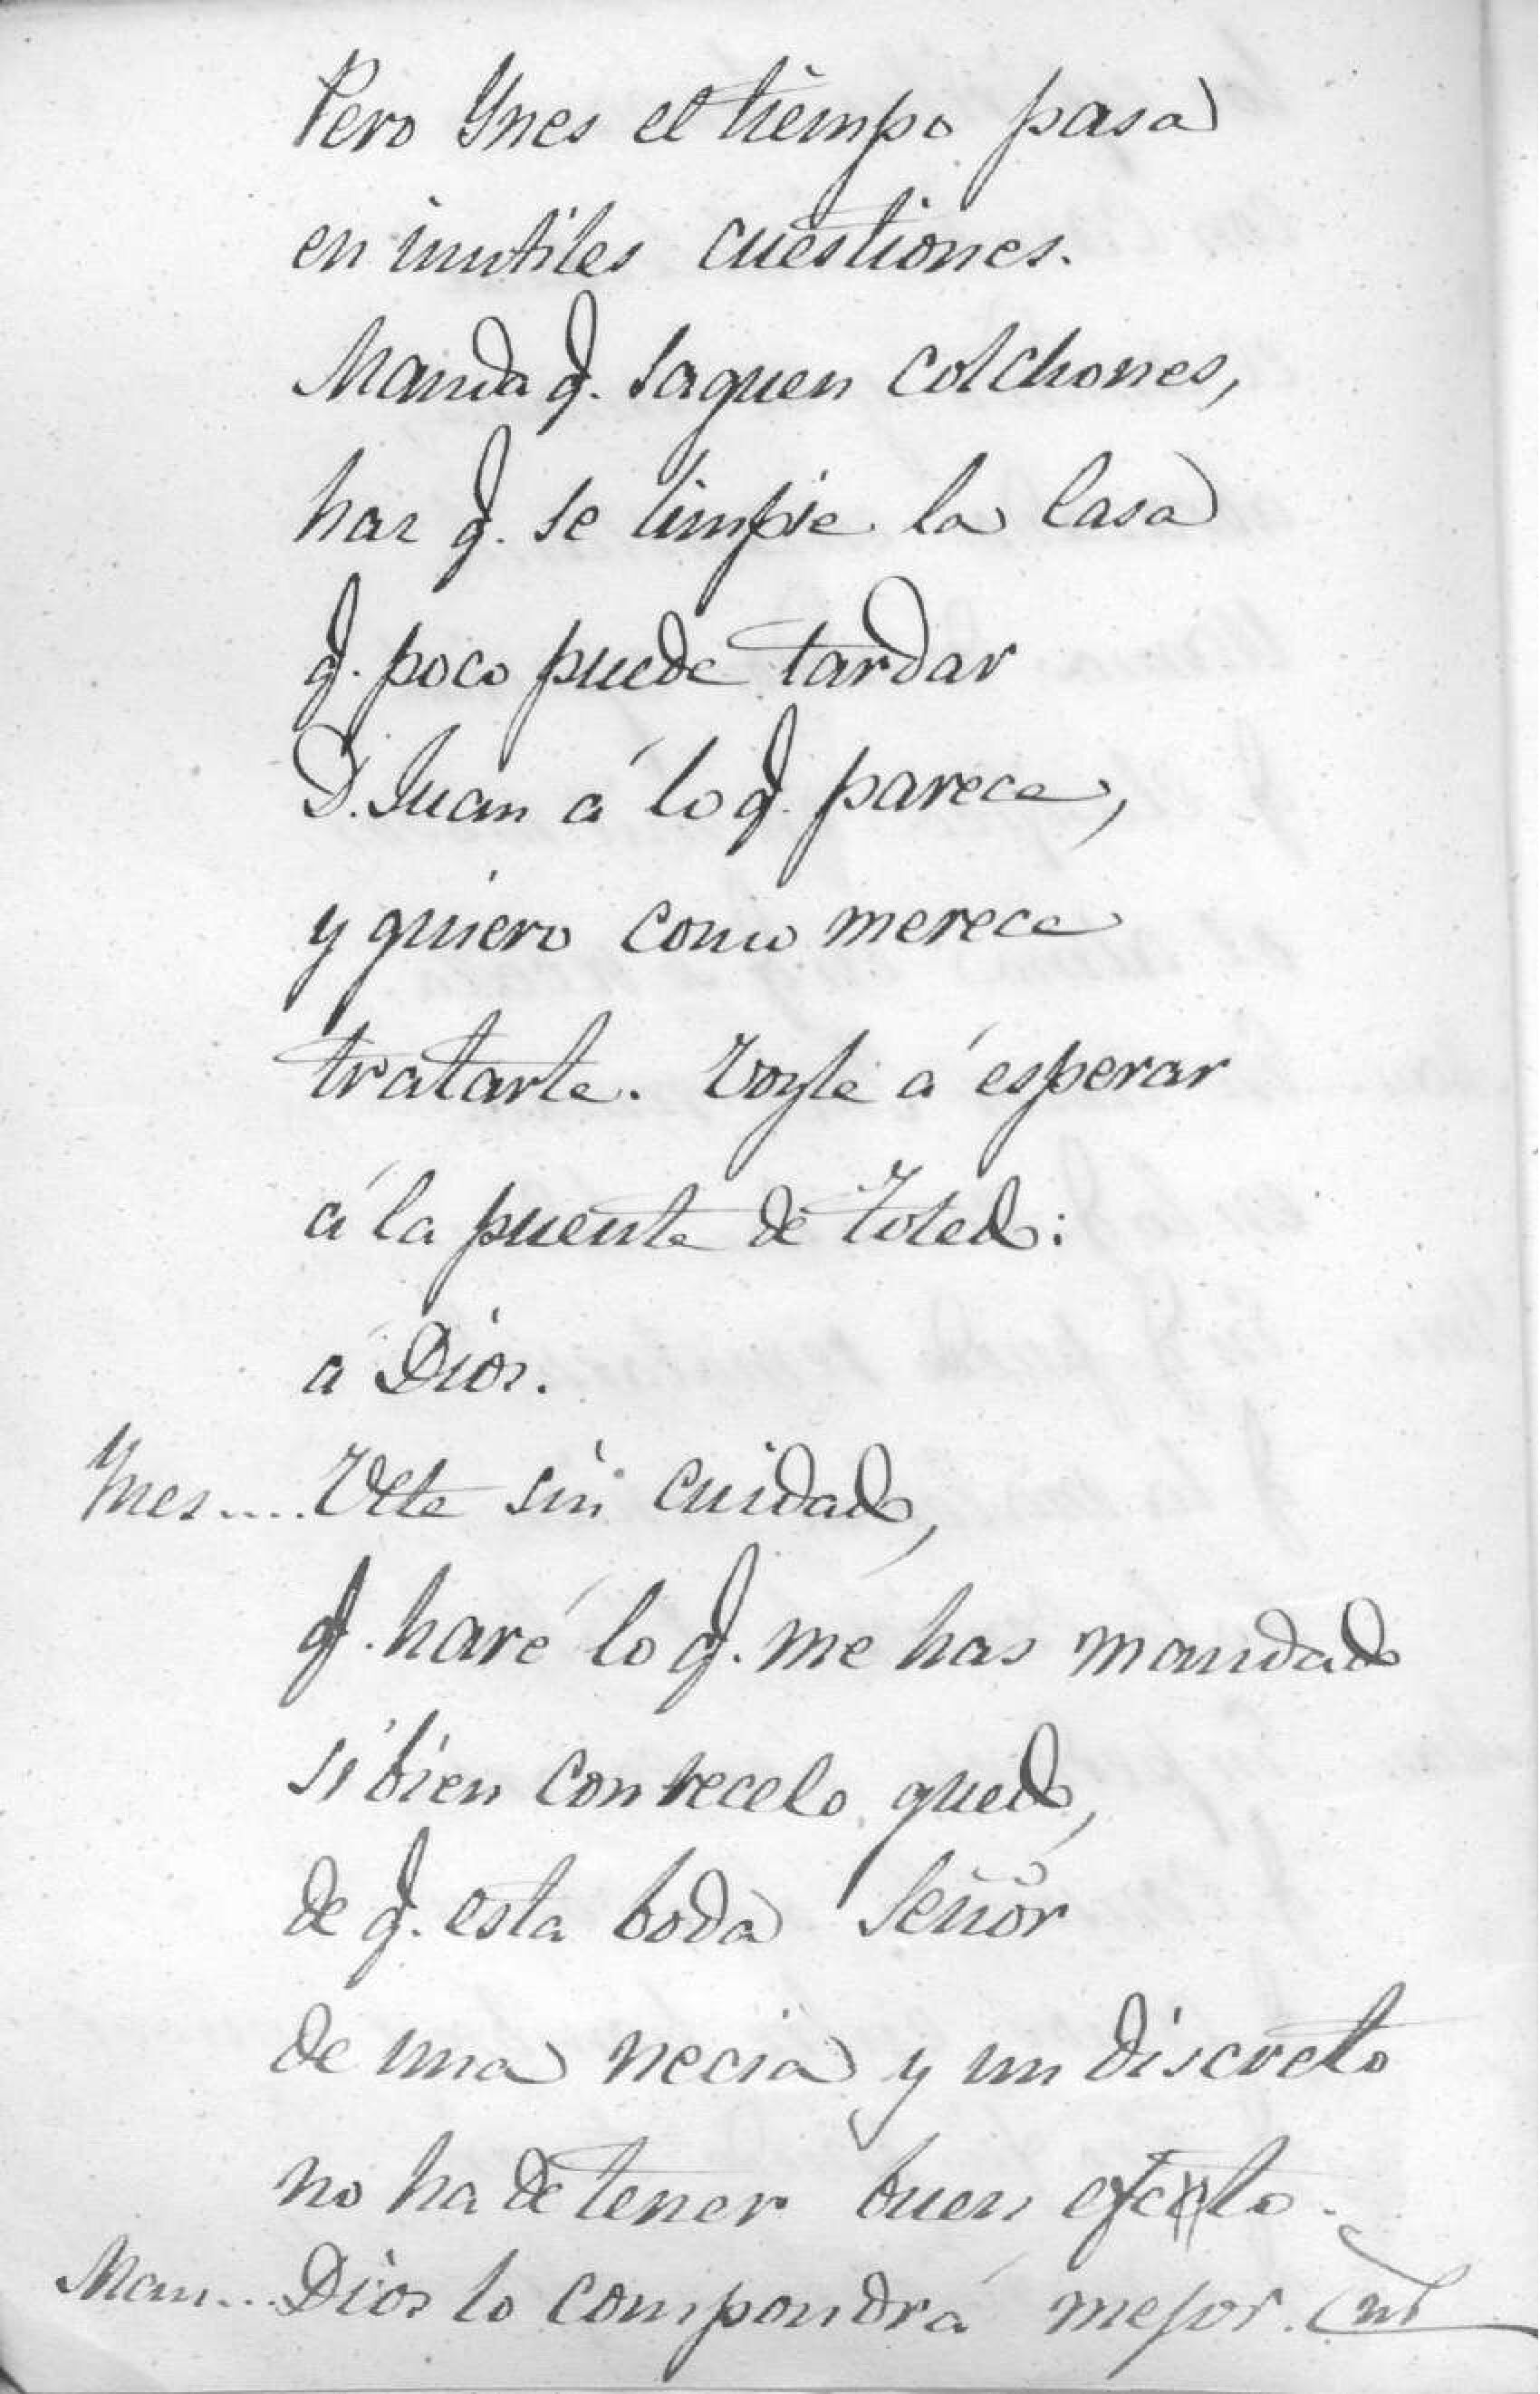 Pero Ynes el tiempo pasa
en inutiles cuestiones.
Manda q. saquen colchones,
haz q. se limpie la casa
q. poco puede tardar
D. Juan á lo q. parece,
y quiero como merece
tratarle. Voyle á esperar
á la puente de Toledo:
a Dios.
Ynes.... Vete sin cuidado,
q. haré lo q. me has mandado
si bien con recelo quedo,
de q. esta boda Señor
de una necia y un discreto
no ha de tener buen efecto.
Man... Dios lo compondrá mejor.